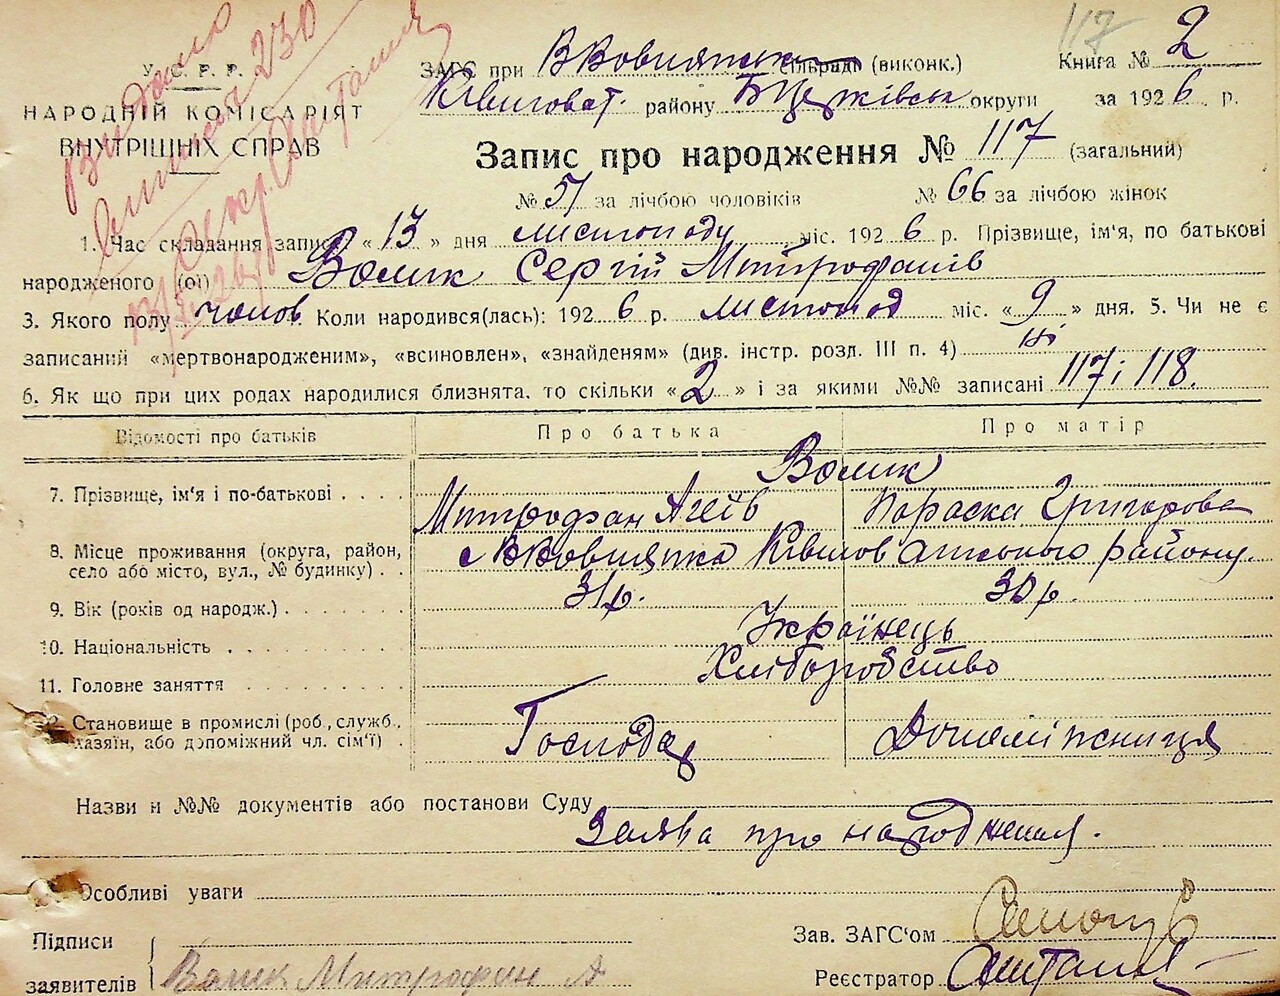 117
У. С. Р. Р.
НАРОДНІЙ КОМІСАРІЯТ
ВНУТРІШНІХ СПРАВ
ЗАГС при сільраді (виконк.) Книга № 2
району округи за 1926 р.
Запис про народження № 117 (загальний)
№ 51 за лічбою чоловіків № 66 за лічбою жінок
1. Час складання запису «13» дня листопаду міс. 1926 р. Прізвище, ім'я, по батькові
народженого (ої) Волик Сергій Митрофанів
3. Якого полу чолов. Коли народився(лась): 1926 р. листопад міс. «9» дня. 5. Чи не є
записаний «мертвонародженим», «всиновлен», «знайденям» (див. інстр. розд. III п. 4) Ні
6. Як що при цих родах народилися близнята, то скільки «2» і за якими №№ записані 117 і 118.
Відомості про батьків Про батька Про матір
Волик
7. Прізвище, ім'я і по-батькові Митрофан Агеїв Параска Григорова
8. Місце проживання (округа, район,
село або місто, вул., № будинку) району.
9. Вік (років од народж.) 31 р. 30 р.
10. Національність Українець
11. Головне заняття Хліборобство
12. Становище в промислі (роб., служб.,
хазяїн, або допоміжний чл. сім'ї) Господар Допоміжниця
Назви и №№ документів або постанови Суду
Заява про народження.
Особливі уваги
Підписи Зав. ЗАГС'ом
заявителів Волик Митрофан А Реєстратор